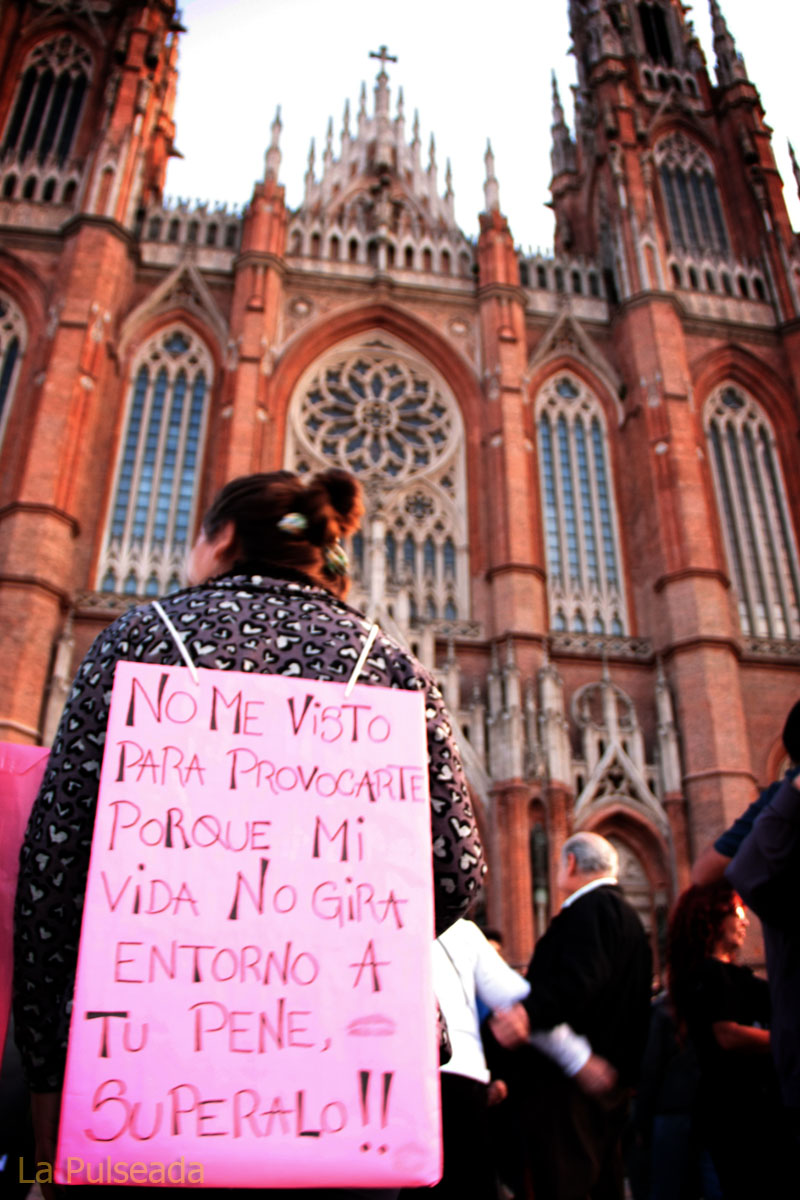 NO ME VISTO
PARA PROVOCARTE
PORQUE MI
VIDA NO GIRA
ENTORNO A
TU PENE,
SUPERALO!!
La Pulseada